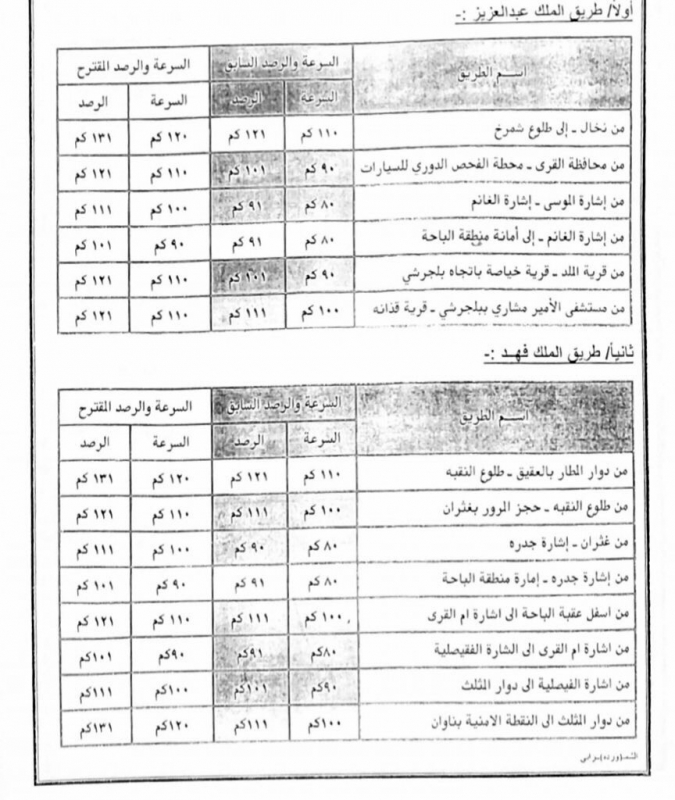 أولاً/ طريق الملك عبدالعزيز :-
اسم الطريق السرعة والرصد السابق السرعة والرصد المقترح
السرعة الرصد السرعة الرصد
من نخال ـ إلى طلوع شمرخ ١١٠ كم ١٢١ كم ١٢٠ كم ١٣١ كم
من محافظة القرى ـ محطة الفحص الدوري للسيارات ٩٠ كم ١٠١ كم ١١٠ كم ١٢١ كم
من إشارة الموسى ـ إشارة الغانم ٨٠ كم ٩١ كم ١٠٠ كم ١١١ كم
من إشارة الغانم ـ إلى أمانة منطقة الباحة ٨٠ كم ٩١ كم ٩٠ كم ١٠١ كم
من قرية الملد ـ قرية خياصة باتجاه بلجرشي ٩٠ كم ١٠١ كم ١١٠ كم ١٢١ كم
من مستشفى الأمير مشاري ببلجرشي ـ قرية قذانه ١٠٠ كم ١١١ كم ١١٠ كم ١٢١ كم
ثانياً/ طريق الملك فهد :-
اسم الطريق السرعة والرصد السابق السرعة والرصد المقترح
السرعة الرصد السرعة الرصد
من دوار المطار بالعقيق ـ طلوع النقبه ١١٠ كم ١٢١ كم ١٢٠ كم ١٣١ كم
من طلوع النقبه ـ حجز المرور بغثران ١٠٠ كم ١١١ كم ١١٠ كم ١٢١ كم
من غثران ـ إشارة جدره ٨٠ كم ٩٠ كم ١٠٠ كم ١١١ كم
من إشارة جدره ـ إمارة منطقة الباحة ٨٠ كم ٩١ كم ٩٠ كم ١٠١ كم
من اسفل عقبة الباحة الى اشارة ام القرى ١٠٠ كم ١١١ كم ١١٠ كم ١٢١ كم
من اشارة ام القرى الى الشارة الفقيصلية ٨٠كم ٩١كم ٩٠كم ١٠١كم
من اشارة الفيصلية الى دوار المثلث ٩٠كم ١٠١كم ١٠٠كم ١١١كم
من دوار المثلث الى النقطة الامنية بناوان ١٠٠كم ١١١كم ١٢٠كم ١٣١كم